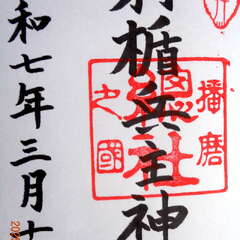 射楯兵主神
播磨
總社
之國
和七年三月十